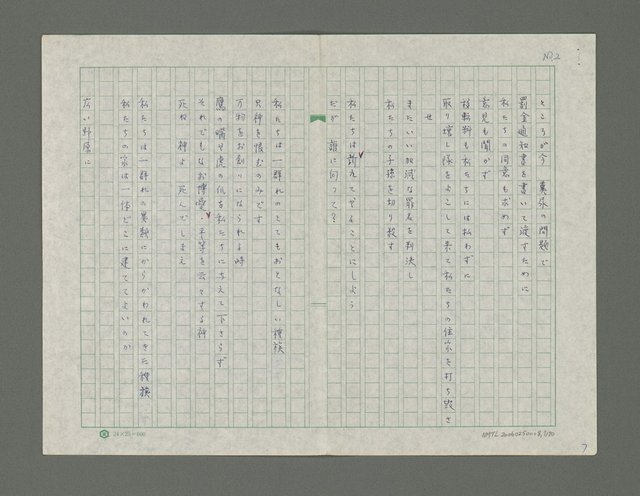 NO.2
ところが今 糞尿の問題で
罰金通知書を書いて渡すために
私たちの同意も求めず
意見も聞かず
移転料も私たちには払わずに
取り壊し隊をよこして来て私たちの住家を打ち毀させ
またいい加減な罪名を判決し
私たちの子孫を切り殺す
私たちは訴えてゆくことにしよう
だが 誰に向って?
私たちは一群れのとてもおとなしい種族
只神を恨むのみです
万物をお創りになられる時
鷹の嘴や虎の爪を私たちに与えて下さらず
それでもなお博愛・平等を云々する神
死ね 神よ 死んでしまえ
私たちは一群れの異類にからかわれてきた種族
私たちの家は一体どこに建ててよいのか
広い野原に
24×25=600
7